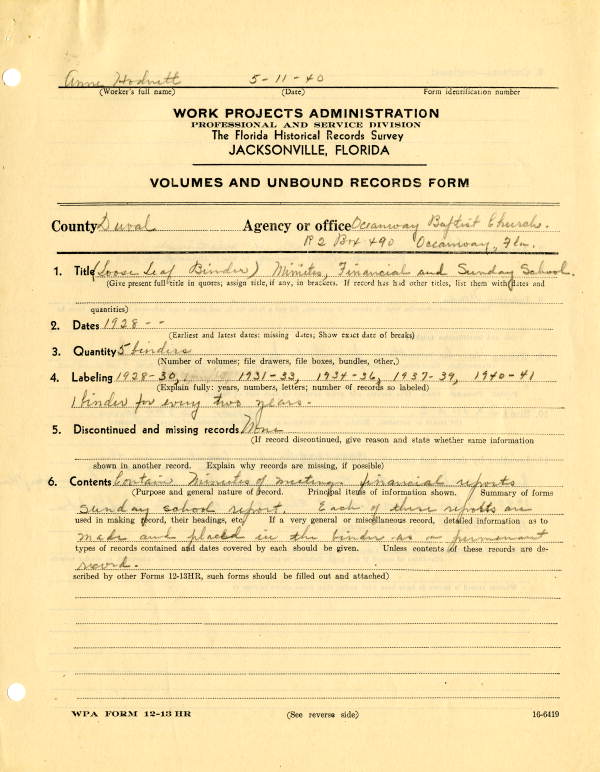 Anne Hodnett 5-11-40
(Worker's full name) (Date) Form identification number
WORK PROJECTS ADMINISTRATION
PROFESSIONAL AND SERVICE DIVISION
The Florida Historical Records Survey
JACKSONVILLE, FLORIDA
VOLUMES AND UNBOUND RECORDS FORM
County Duval Agency or office Oceanway Baptist Church.
R 2 Box 490 Oceanway, Fla.
1. Title (Loose Leaf Binder) Minutes, Financial and Sunday School.
(Give present full title in quotes; assign title, if any, in brackets. If record has had other titles, list them with dates and
quantities)
2. Dates 1928 - -
(Earliest and latest dates: missing dates; Show exact date of breaks)
3. Quantity 5 binders
(Number of volumes; file drawers, file boxes, bundles, other,)
4. Labeling 1928-30, 1931-33, 1934-36, 1937-39, 1940-41
(Explain fully: years, numbers, letters; number of records so labeled)
1 binder for every two years.
5. Discontinued and missing records None
(If record discontinued, give reason and state whether same information
shown in another record. Explain why records are missing, if possible)
6. Contents Contain Minutes of meetings financial reports
(Purpose and general nature of record. Principal items of information shown. Summary of forms
Sunday school report. Each of these reports are
used in making record, their headings, etc. If a very general or miscellaneous record, detailed information as to
made and placed in the binder as a permanent
types of records contained and dates covered by each should be given. Unless contents of these records are de-
record.
scribed by other Forms 12-13HR, such forms should be filled out and attached)
WPA FORM 12-13 HR (See reverse side) 16-6419